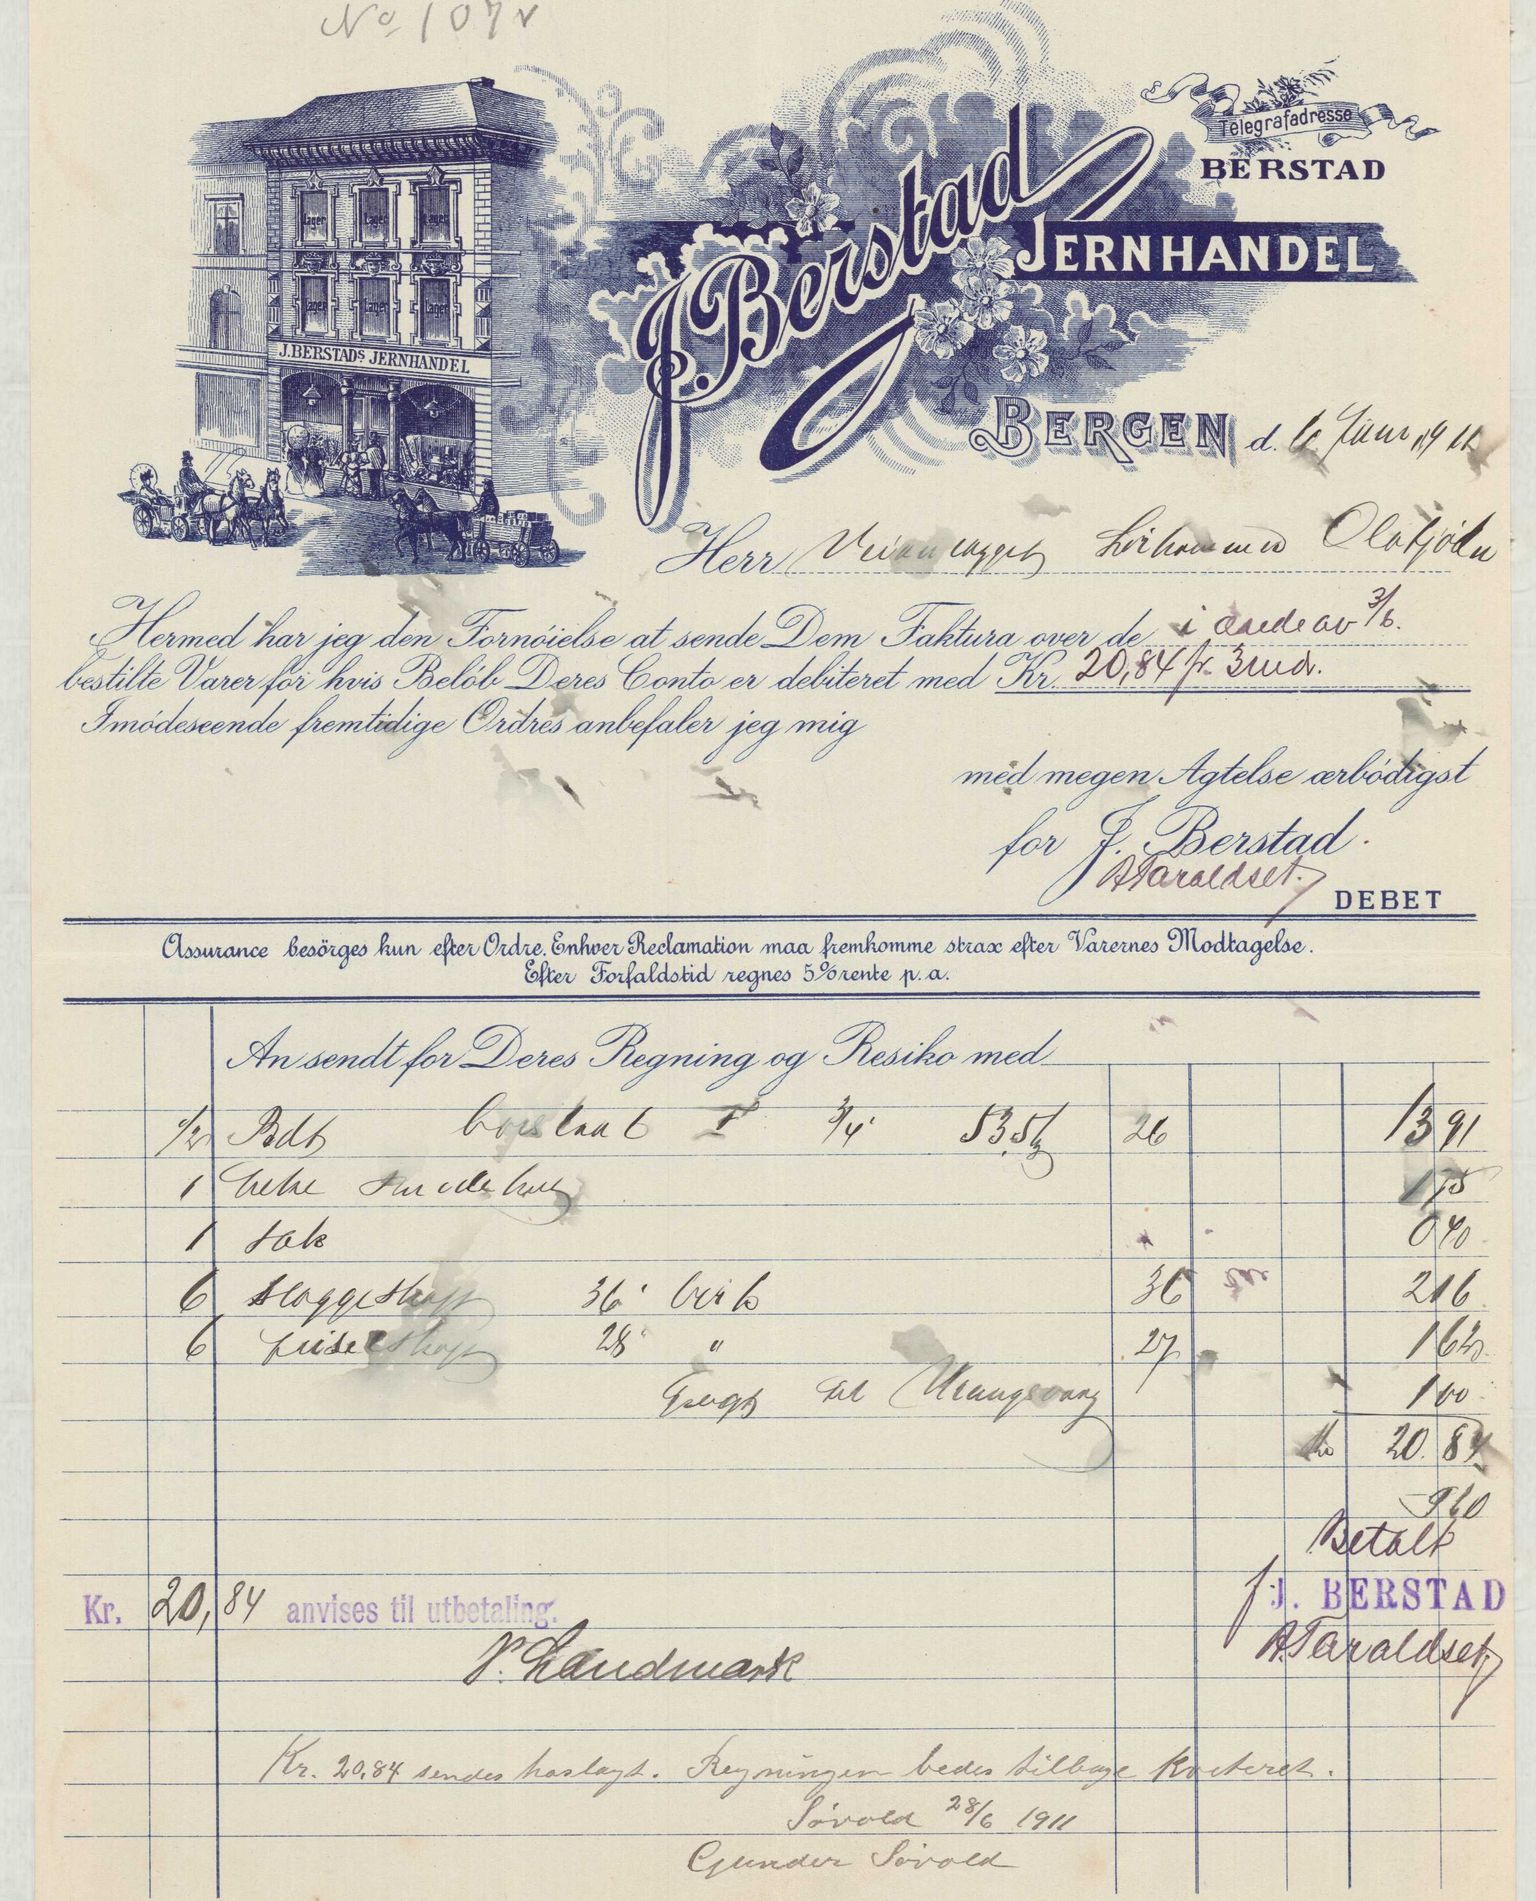 No 107
Telegrafadresse
BERSTAD
J. Berstad
JERNHANDEL
Lager Lager Lager
Lager Lager Lager
J. BERSTADS JERNHANDEL
BERGEN d. 6 Juni 1911
Herr
Hermed har jeg den Fornöielse at sende Dem Faktura over de i ordre av 3/6.
bestilte Varer för hvis Belöb Deres Conto er debiteret med Kr. 20,84 pr. 3 md.
Imödeseende fremtidige Ordres anbefaler jeg mig
med megen Agtelse ærbödigst
for J. Berstad.
A Taraldset.
DEBET
Assurance besörges kun efter Ordre. Enhver Reclamation maa fremkomme strax efter Varernes Modtagelse.
Efter Forfaldstid regnes 5% rente p. a.
An sendt for Deres Regning og Resiko med
1/2 Bdt 3/4" 53,5 26 13 91
1 1 75
1 sæk 0 40
6 sleggeskaft 36" birk 36 2 16
6 feiselskaft 28" " 27 1 62
Fragt til 1 00
Kr 20.84
Betalt
f J. BERSTAD
A. Taraldset
Kr. 20,84 anvises til utbetaling.
N. Landmark
Kr. 20.84 sendes hoslagt. Regningen bedes tilbage kvitteret.
Sövold 28/6 1911
Gunder Sövold